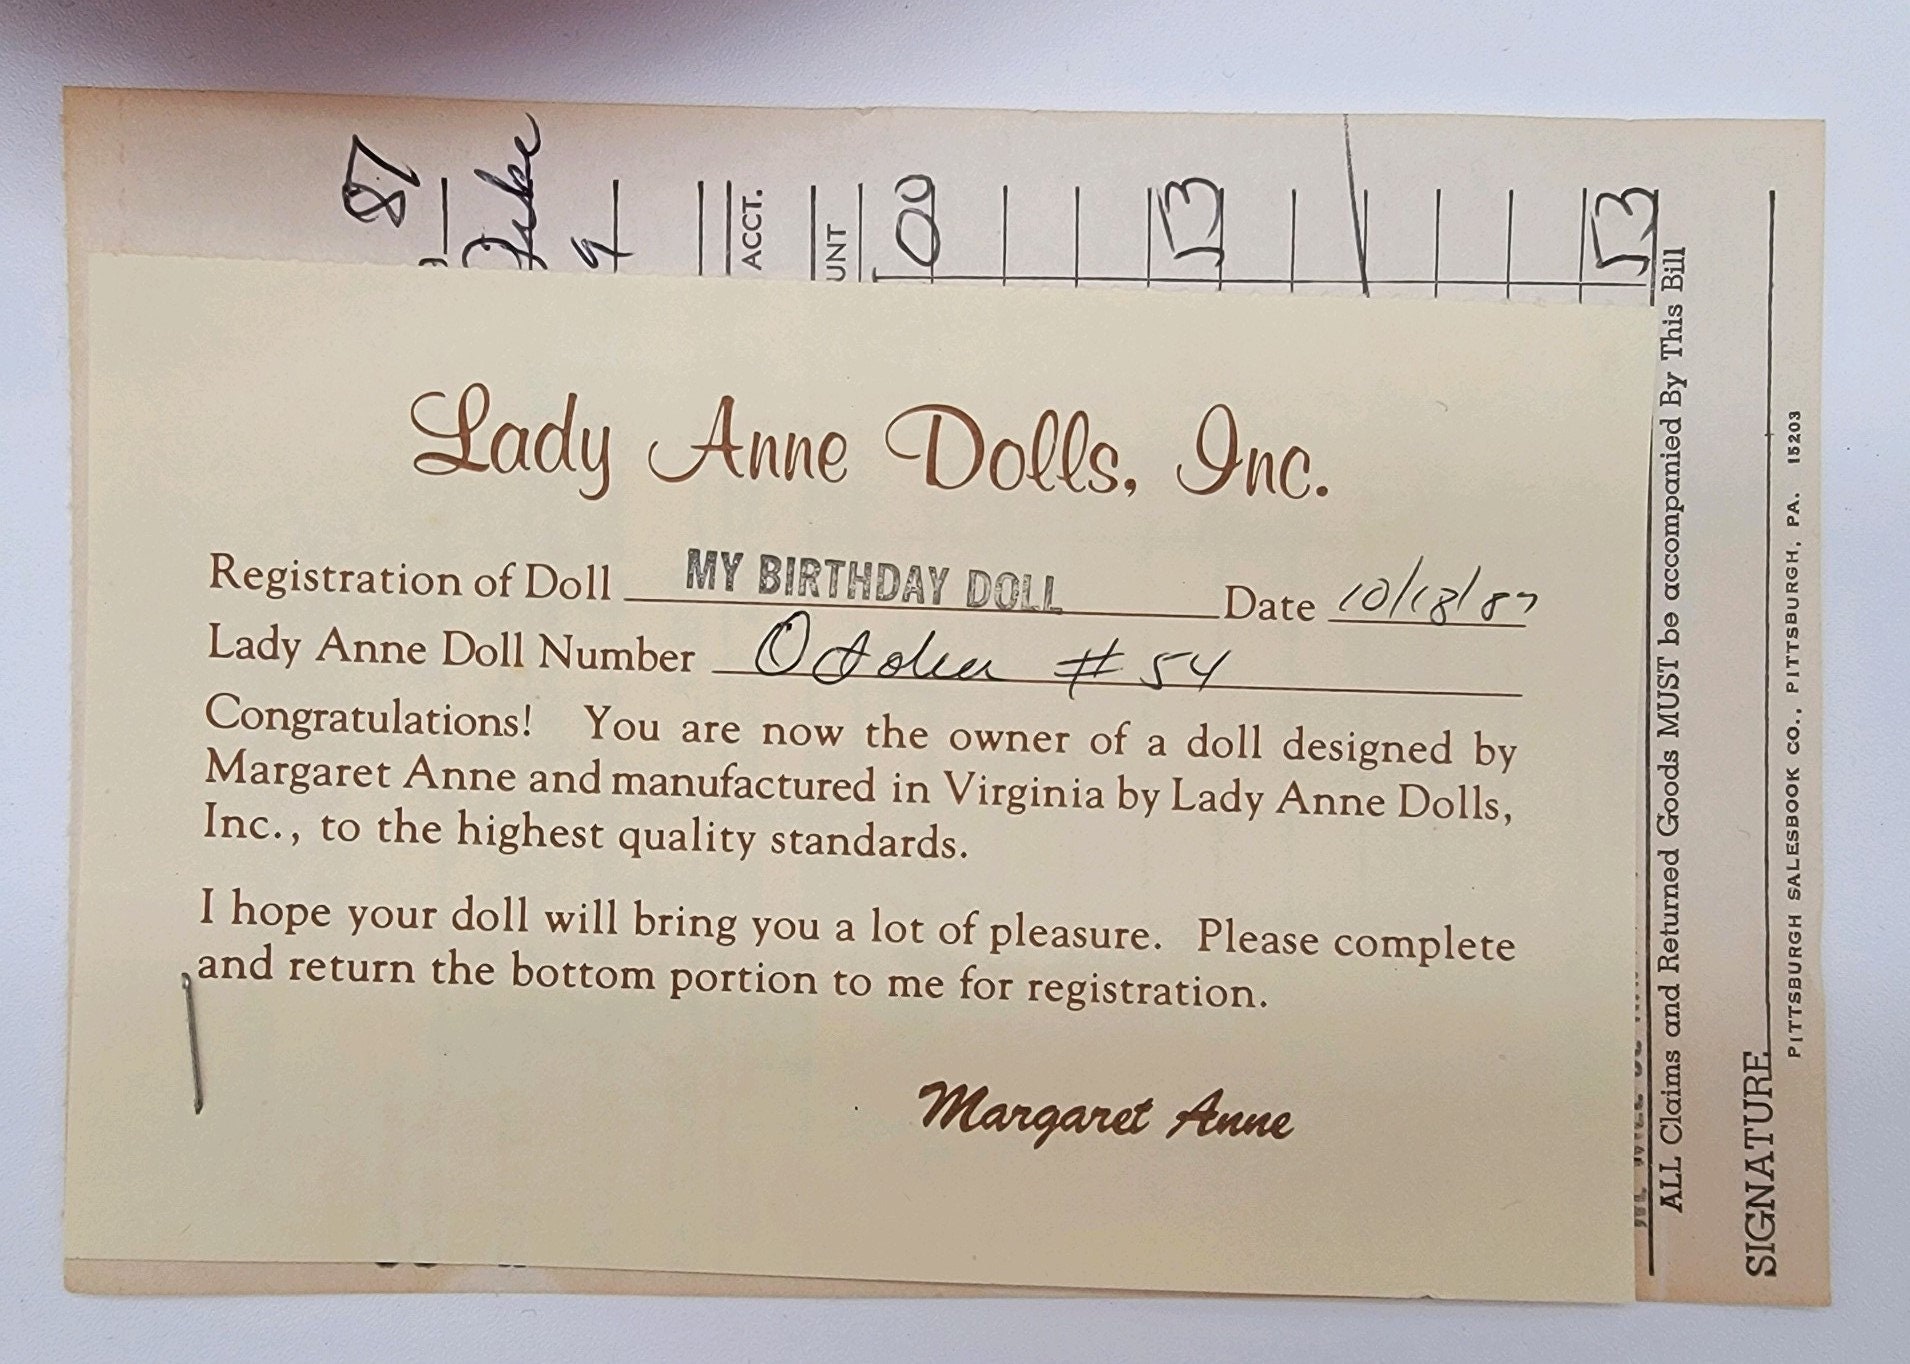 Lady Anne Dolls, Inc.
Registration of Doll MY BIRTHDAY DOLL Date 10/18/87
Lady Anne Doll Number October #54
Congratulations! You are now the owner of a doll designed by
Margaret Anne and manufactured in Virginia by Lady Anne Dolls,
Inc., to the highest quality standards.
I hope your doll will bring you a lot of pleasure. Please complete
and return the bottom portion to me for registration.
Margaret Anne
87
ACCT.
UNT
00
53
53
ALL Claims and Returned Goods MUST be accompanied By This Bill
SIGNATURE
PITTSBURGH SALESBOOK CO., PITTSBURGH, PA. 15203